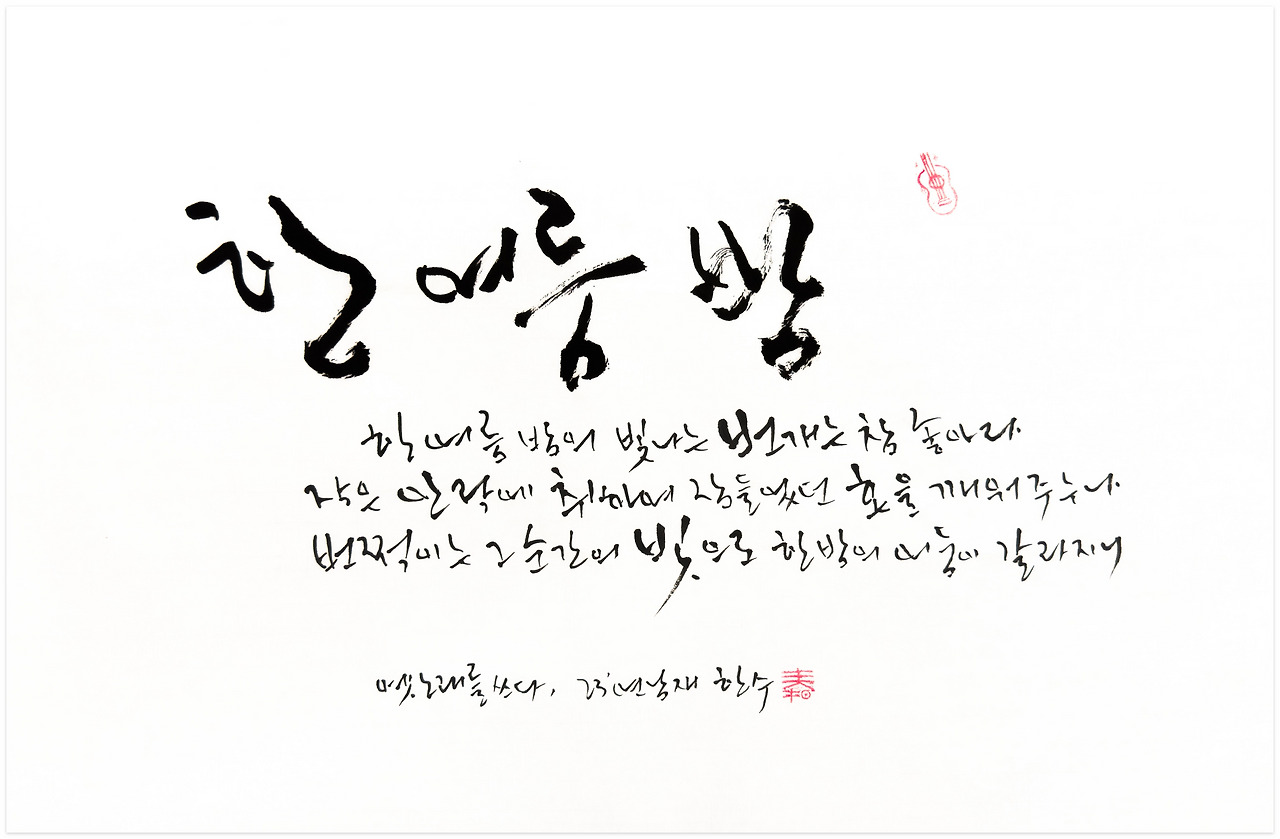 한 여름 밤
한 여름 밤의 빛나는 번개는 참 좋아라
작은 안락에 취하여 잠들었던 혼을 깨워주누나
번쩍이는 그 순간의 빛으로 한밤의 어둠이 갈라지니
옛노래를 쓰다, 23'년 남재 한수